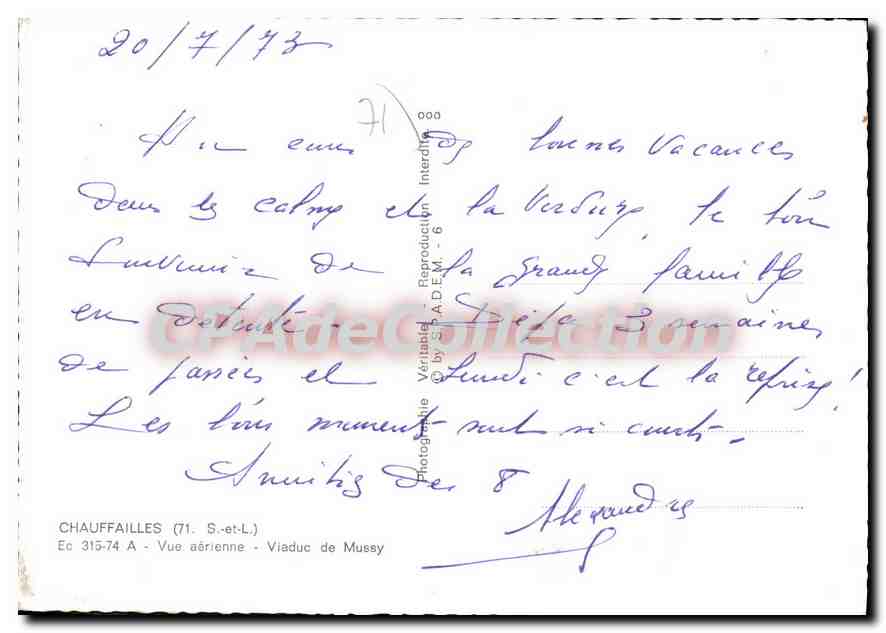 20/7/73
71
Au cours de bonnes vacances
dans le calme et la verdure, le bon
Souvenir de la grande famille
en détente - Déjà 3 semaines
de passées et Lundi c'est la reprise!
Les bons moments sont si courts.
Amitiés des 8
Alexandre
CHAUFFAILLES (71. S.-et-L.)
Ec 315-74 A - Vue aérienne - Viaduc de Mussy
Photographie Véritable - Reproduction Interdite
© by S.P.A.D.E.M. - 6
000
CPAdeCollection